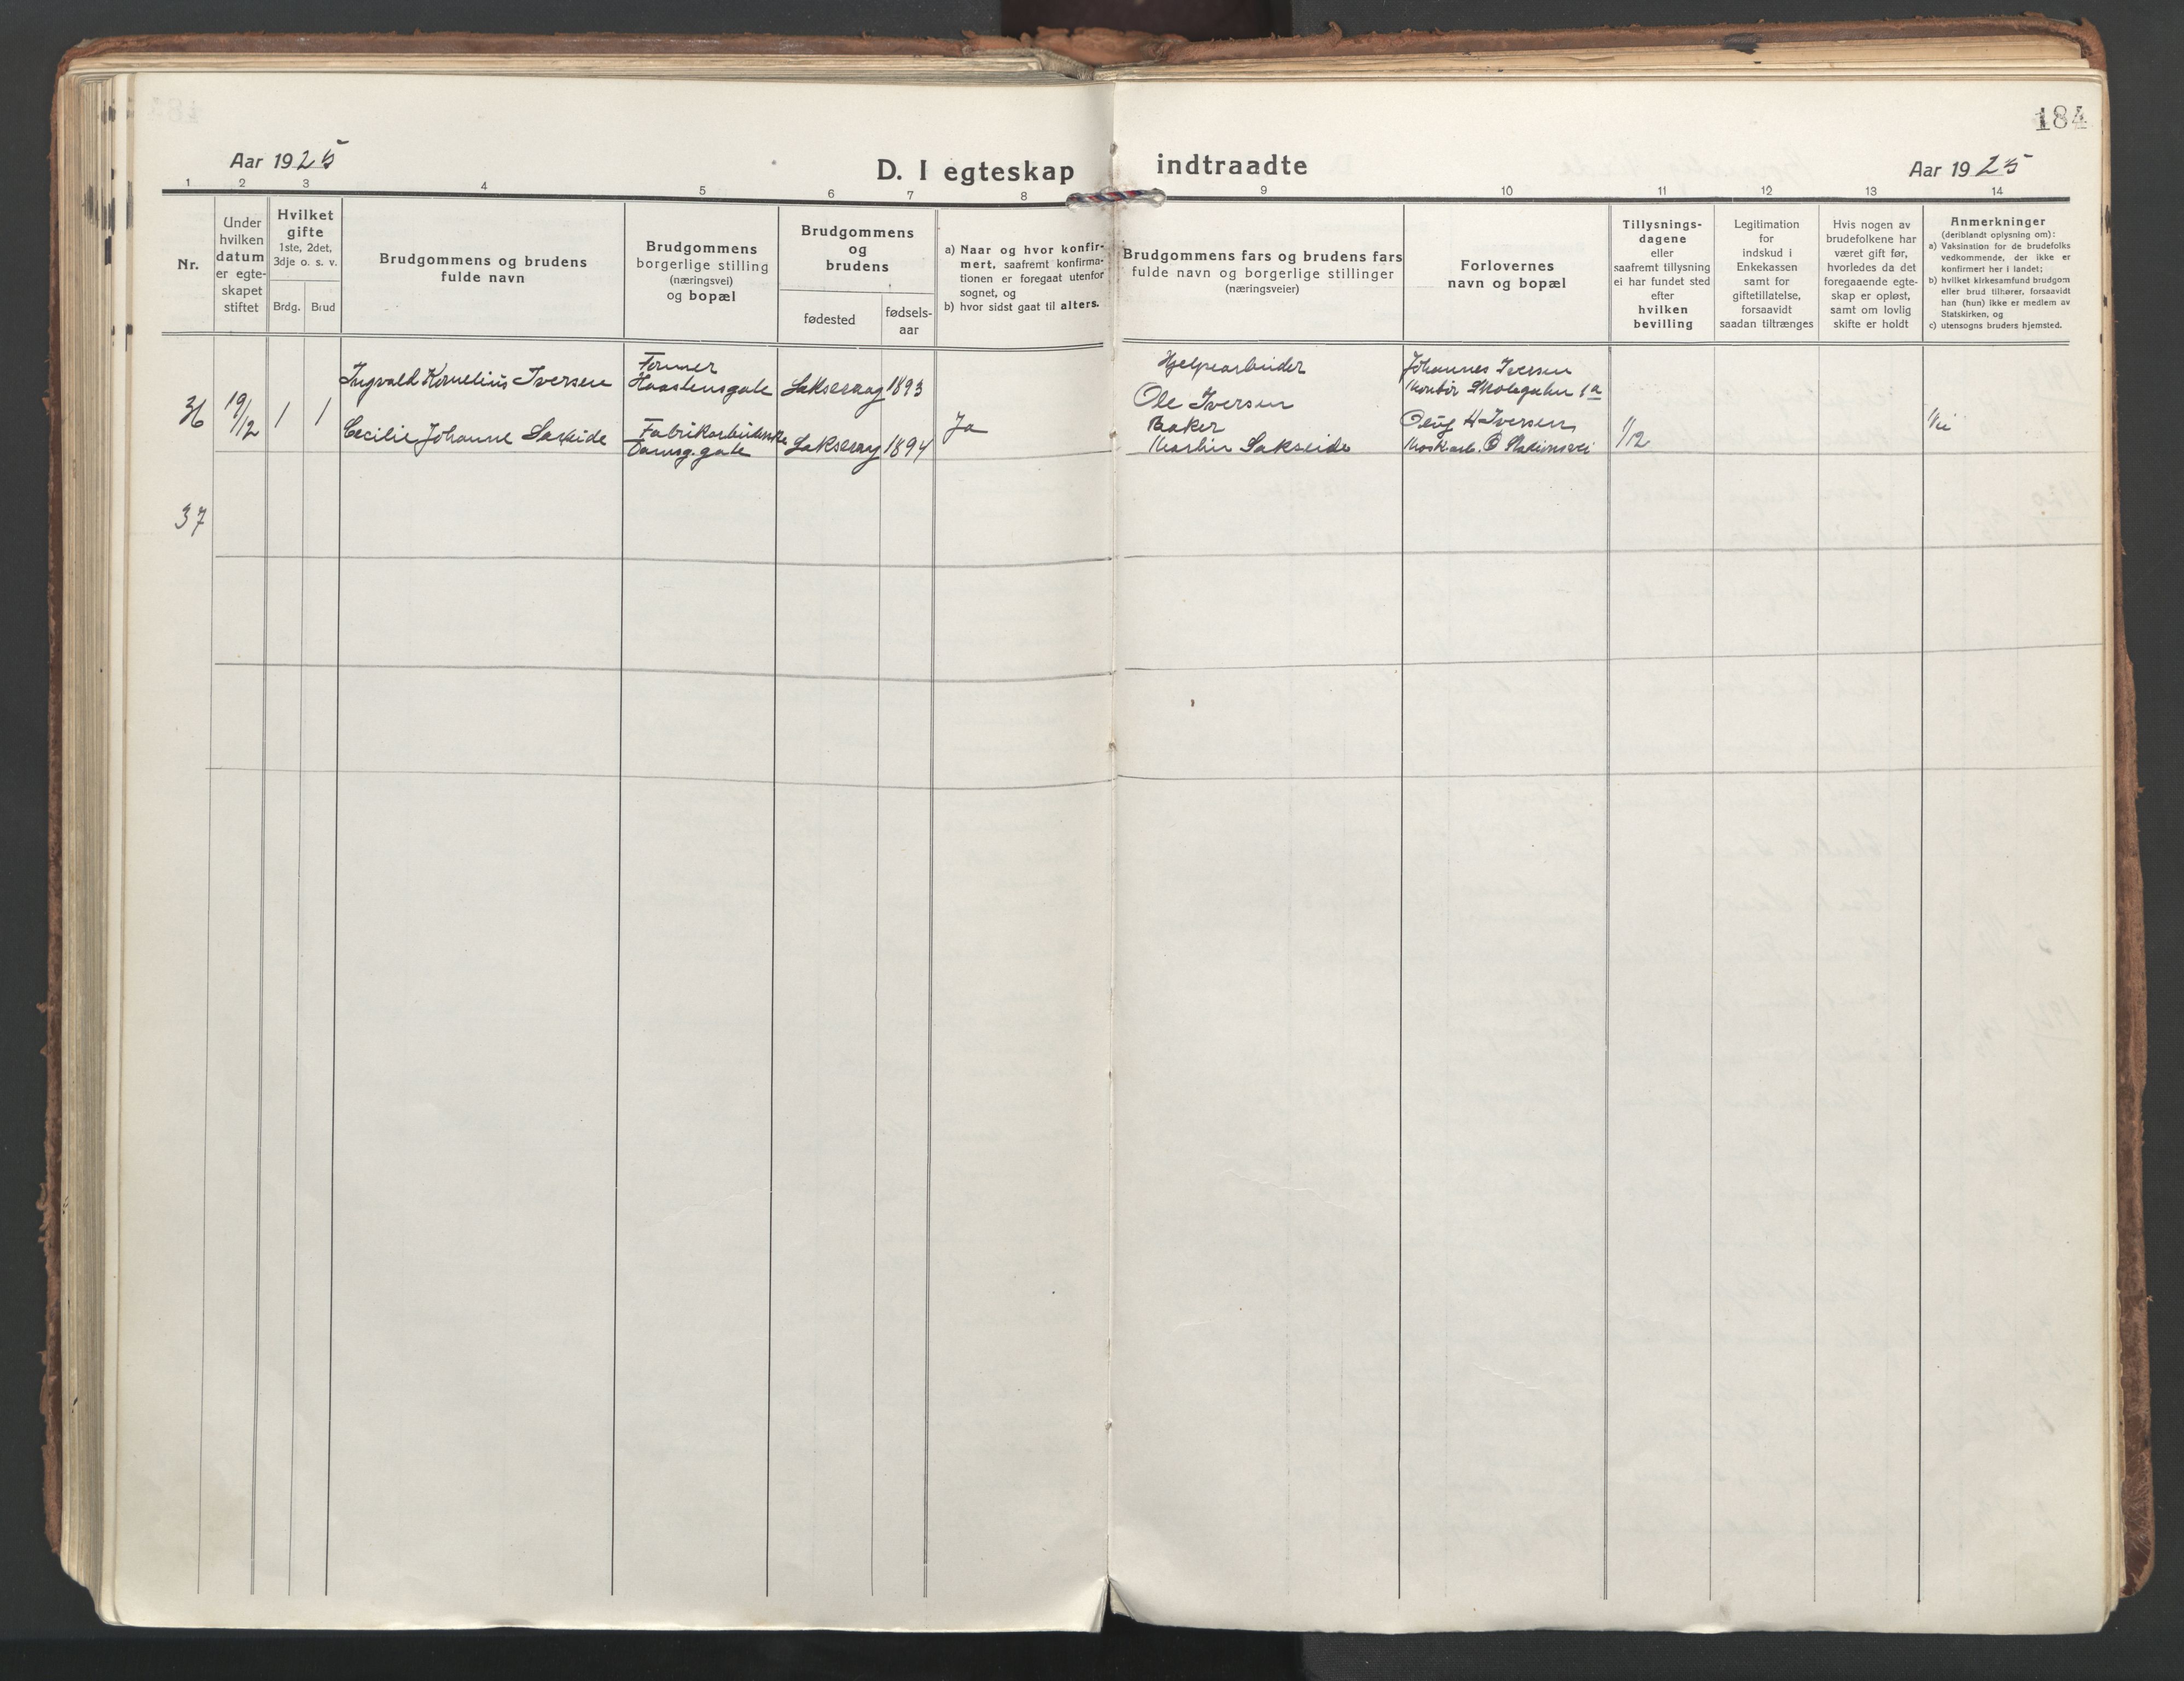 184
Aar 1925
D. I egteskap indtraadte
Aar 1925
1 2 3 4 5 6 7 8 9 10 11 12 13 14
Nr.
Under
hvilken
datum
er egte-
skapet
stiftet
Hvilket
gifte
1ste, 2det,
3dje o. s. v.
Brdg. Brud
Brudgommens og brudens
fulde navn
Brudgommens
borgerlige stilling
(næringsvei)
og bopæl
Brudgommens
og
brudens
fødested
fødsels-
aar
a) Naar og hvor konfir-
mert, saafremt konfirma-
tionen er foregaat utenfor
sognet, og
b) hvor sidst gaat til alters.
Brudgommens fars og brudens fars
fulde navn og borgerlige stillinger
(næringsveier)
Forlovernes
navn og bopæl
Tillysnings-
dagene
eller
saafremt tillysning
ei har fundet sted
efter
hvilken
bevilling
Legitimation
for
indskud i
Enkekassen
samt for
giftetillatelse,
forsaavidt
saadan tiltrænges
Hvis nogen av
brudefolkene har
været gift før,
hvorledes da det
foregaaende egte-
skap er opløst,
samt om lovlig
skifte er holdt
Anmerkninger
(deriblandt oplysning om):
a) Vaksination for de brudefolks
vedkommende, der ikke er
konfirmert her i landet;
b) hvilket kirkesamfund brudgom
eller brud tilhører, forsaavidt
han (hun) ikke er medlem av
Statskirken, og
c) utensogns bruders hjemsted.
36
19/12
1 1
Ingvald Kornelius Iversen
Cecilie Johanne Sakseide
Former
Haasteinsgate
Fabrikarbeiderske
Damsg. gate
Laksevaag 1893
Laksevaag 1894
Ja
Hjelpearbeider
Ole Iversen
Baker
Martin Sakseide
Johannes Iversen
Kontor Skolegaten 1a
Oluf H Iversen
1/12
37